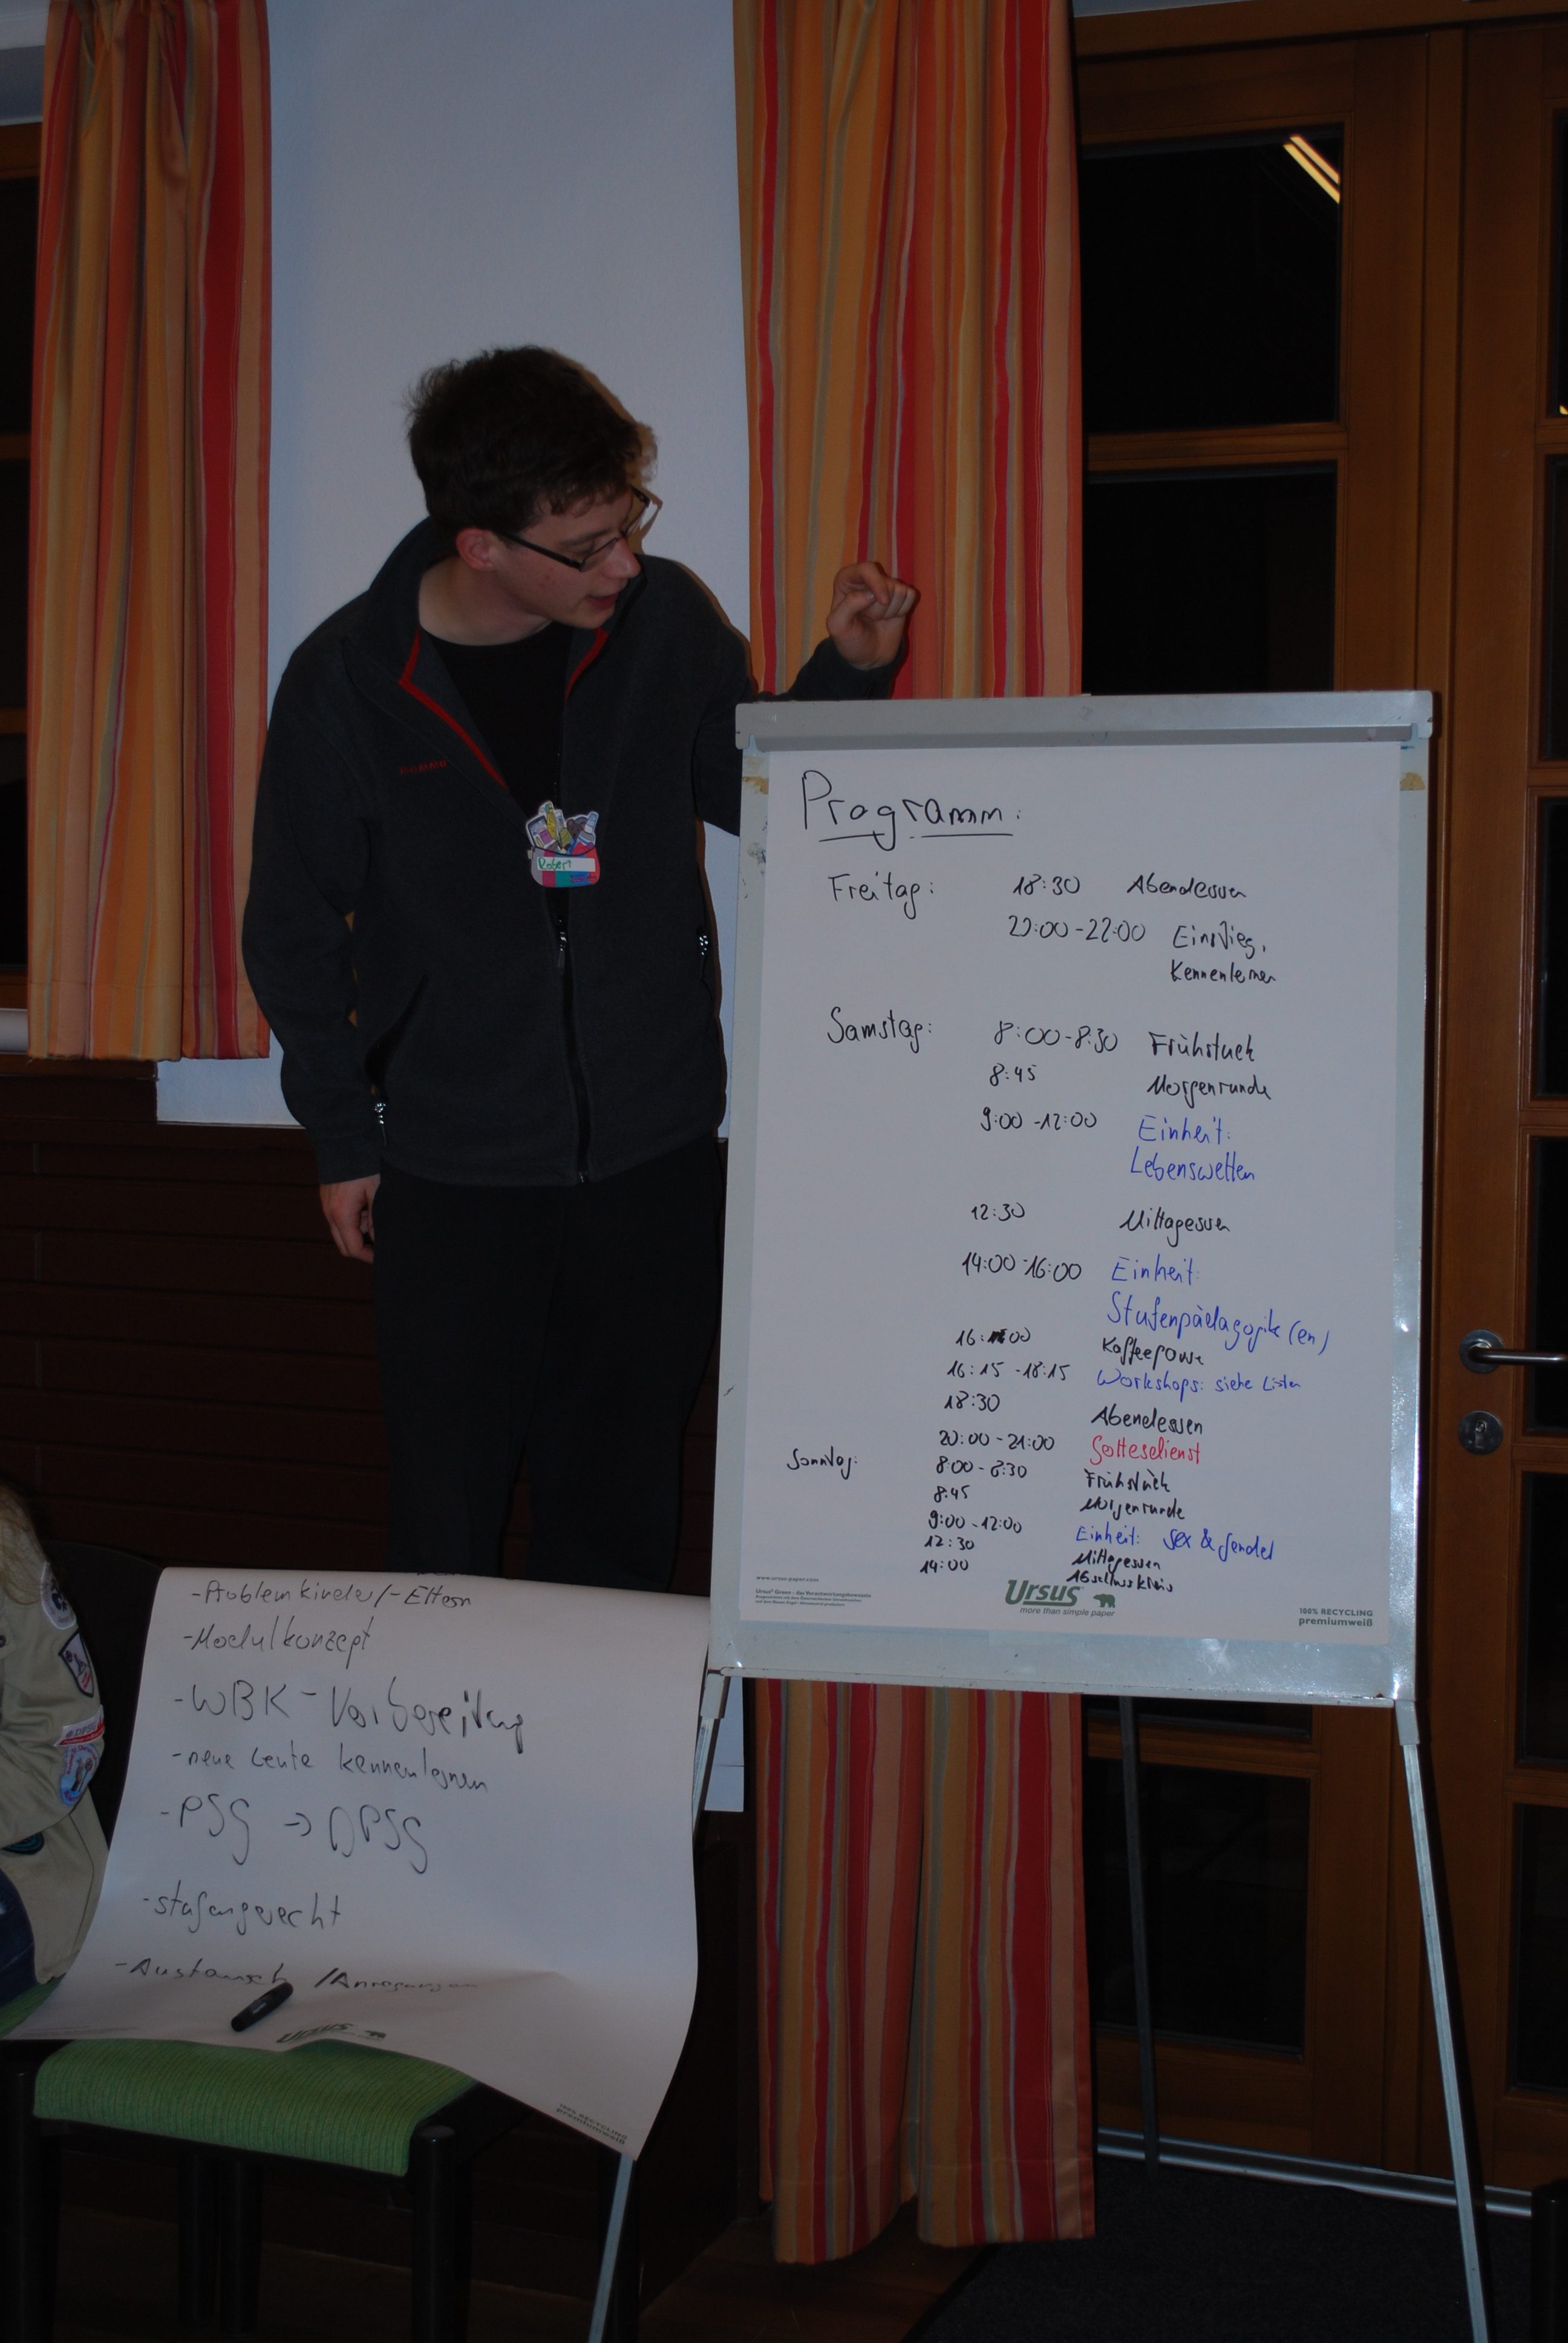 Robert
Programm:
Freitag: 18:30 Abendessen
20:00-22:00 Einstieg,
Kennenlernen
Samstag: 8:00-8:30 Frühstück
8:45 Morgenrunde
9:00-12:00 Einheit:
Lebenswelten
12:30 Mittagessen
14:00-16:00 Einheit:
Stufenpädagogik (en)
16:00 Kaffeepause
16:15-18:15 Workshops: siehe Listen
18:30 Abendessen
20:00-21:00 Gottesdienst
Sonntag: 8:00-8:30 Frühstück
8:45 Morgenrunde
9:00-12:00 Einheit: Sex & Gender
12:30 Mittagessen
14:00 Abschlusskreis
www.ursus-paper.com
Ursus
more than simple paper
100% RECYCLING
premiumweiß
-Problemkinder/-Eltern
-Modulkonzept
-WBK-Vorbereitung
-neue Leute kennenlernen
-PSG → DPSG
-stufengerecht
-Austausch /Anregungen
Ursus
100% RECYCLING
premiumweiß